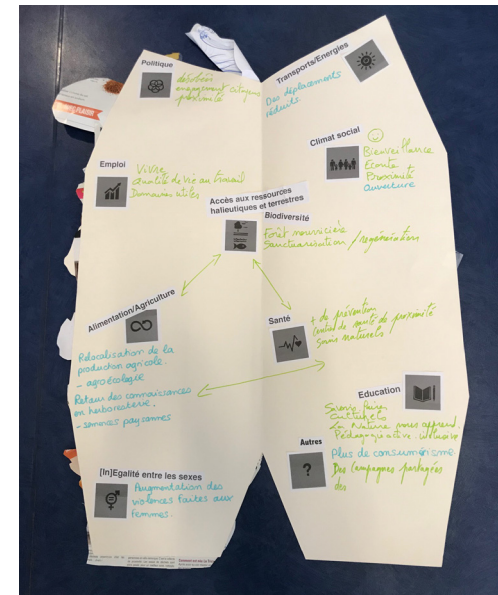 Politique
engagement citoyen
proximité
Transports/Energies
Des déplacements
réduits
Climat social
Bienveillance
Ecoute
Proximité
ouverture
Emploi
Vivre
Qualité de vie au travail
Domaines utiles
Accès aux ressources
halieutiques et terrestres
Biodiversité
Forêt nourricière
Sanctuarisation / régénération
Alimentation/Agriculture
Relocalisation de la
production agricole.
- agroécologie
Retour des connaissances
en herboristerie.
- semences paysannes
Santé
+ de prévention
de santé de proximité
soins naturels
Education
Savoir Faire
Culturels
La Nature nous apprend.
Pédagogie active
Autres
?
Plus de consumérisme
Des campagnes partagées
des
[In]Egalité entre les sexes
Augmentation des
violences faites aux
femmes.